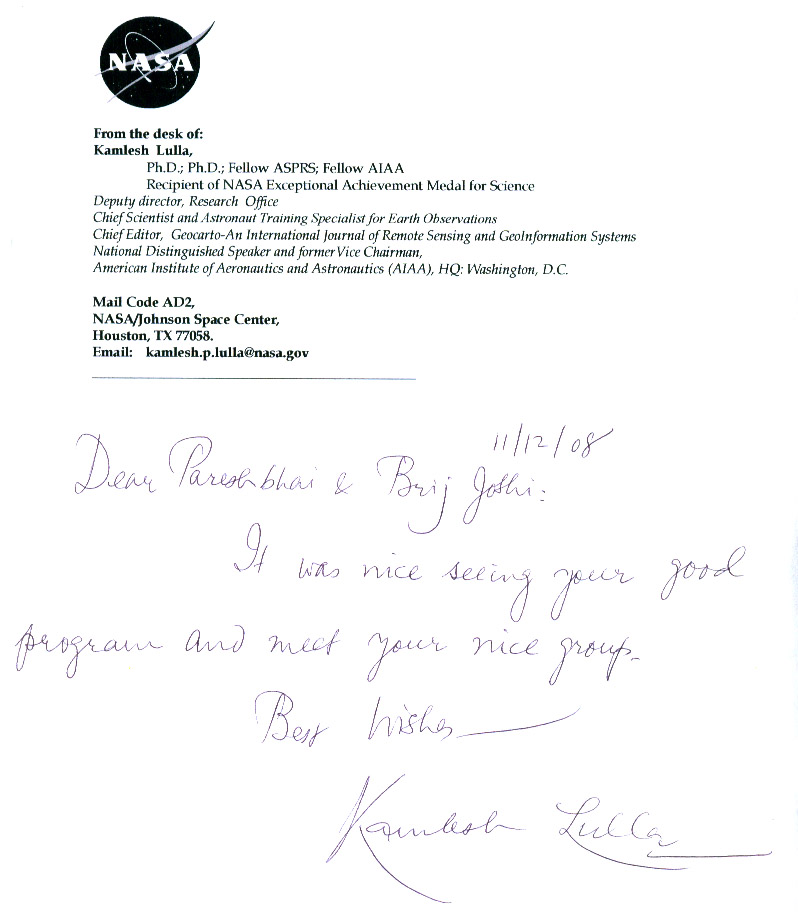 NASA
From the desk of:
Kamlesh Lulla,
Ph.D.; Ph.D.; Fellow ASPRS; Fellow AIAA
Recipient of NASA Exceptional Achievement Medal for Science
Deputy director, Research Office
Chief Scientist and Astronaut Training Specialist for Earth Observations
Chief Editor, Geocarto-An International Journal of Remote Sensing and GeoInformation Systems
National Distinguished Speaker and former Vice Chairman,
American Institute of Aeronautics and Astronautics (AIAA), HQ: Washington, D.C.
Mail Code AD2,
NASA/Johnson Space Center,
Houston, TX 77058.
Email: kamlesh.p.lulla@nasa.gov
11/12/08
Dear Pareshbhai & Brij Joshi:
It was nice seeing your good
program and meet your nice group.
Best Wishes
Kamlesh Lulla